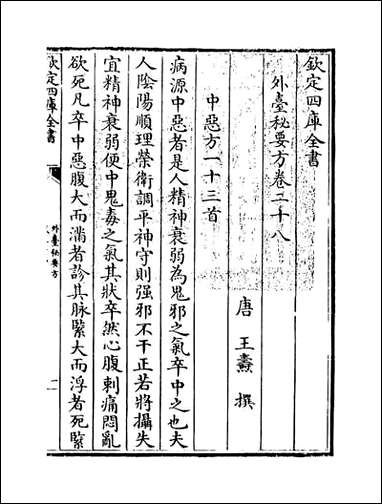 欽定四庫全書
外臺秘要方卷二十八
唐 王燾 撰
中惡方一十三首
病源中惡者是人精神衰弱為鬼邪之氣卒中之也夫
人陰陽順理榮衛調平神守則强邪不干正若將攝失
宜精神衰弱便中鬼毒之氣其狀卒然心腹刺痛悶亂
欲死凡卒中惡腹大而滿者診其脉緊大而浮者死緊
欽定四庫全書
外臺秘要方